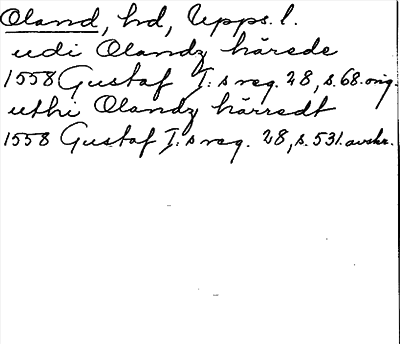 Oland, hd, Upps. l.
udi Olandz härede
1558 Gustaf I:s reg. 28, s. 68. orig.
uthi Olandz härredt
1558 Gustaf I:s reg. 28, s. 531. avskr.